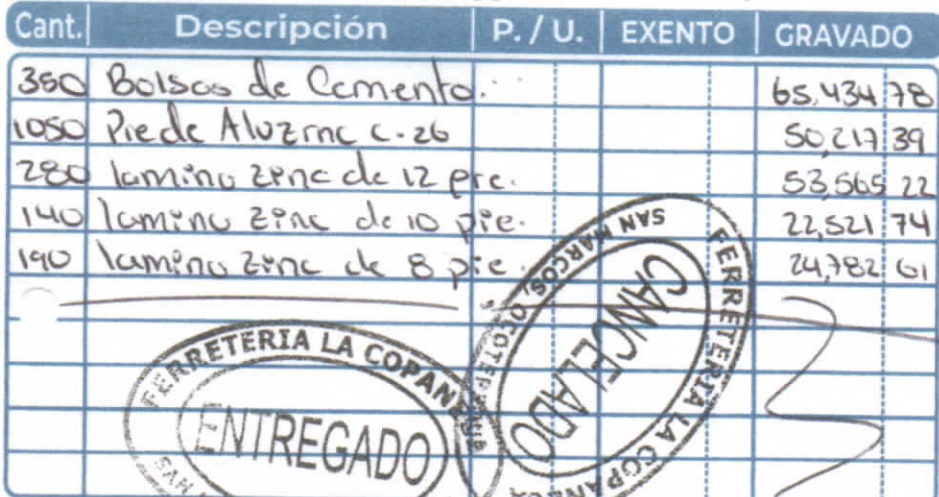 Cant. Descripción P. / U. EXENTO GRAVADO
350 Bolsas de Cemento. 65,434 78
1050 Pie de Aluzinc c-26 50,217 39
280 lamina zinc de 12 pie. 53,565 22
140 lamina zinc de 10 pie. 22,521 74
190 lamina zinc de 8 pie. 24,782 61
FERRETERIA LA COPANECA
SAN MARCOS, OCOTEPEQUE
CANCELADO
FERRETERIA LA COPANE
ENTREGADO
SAN